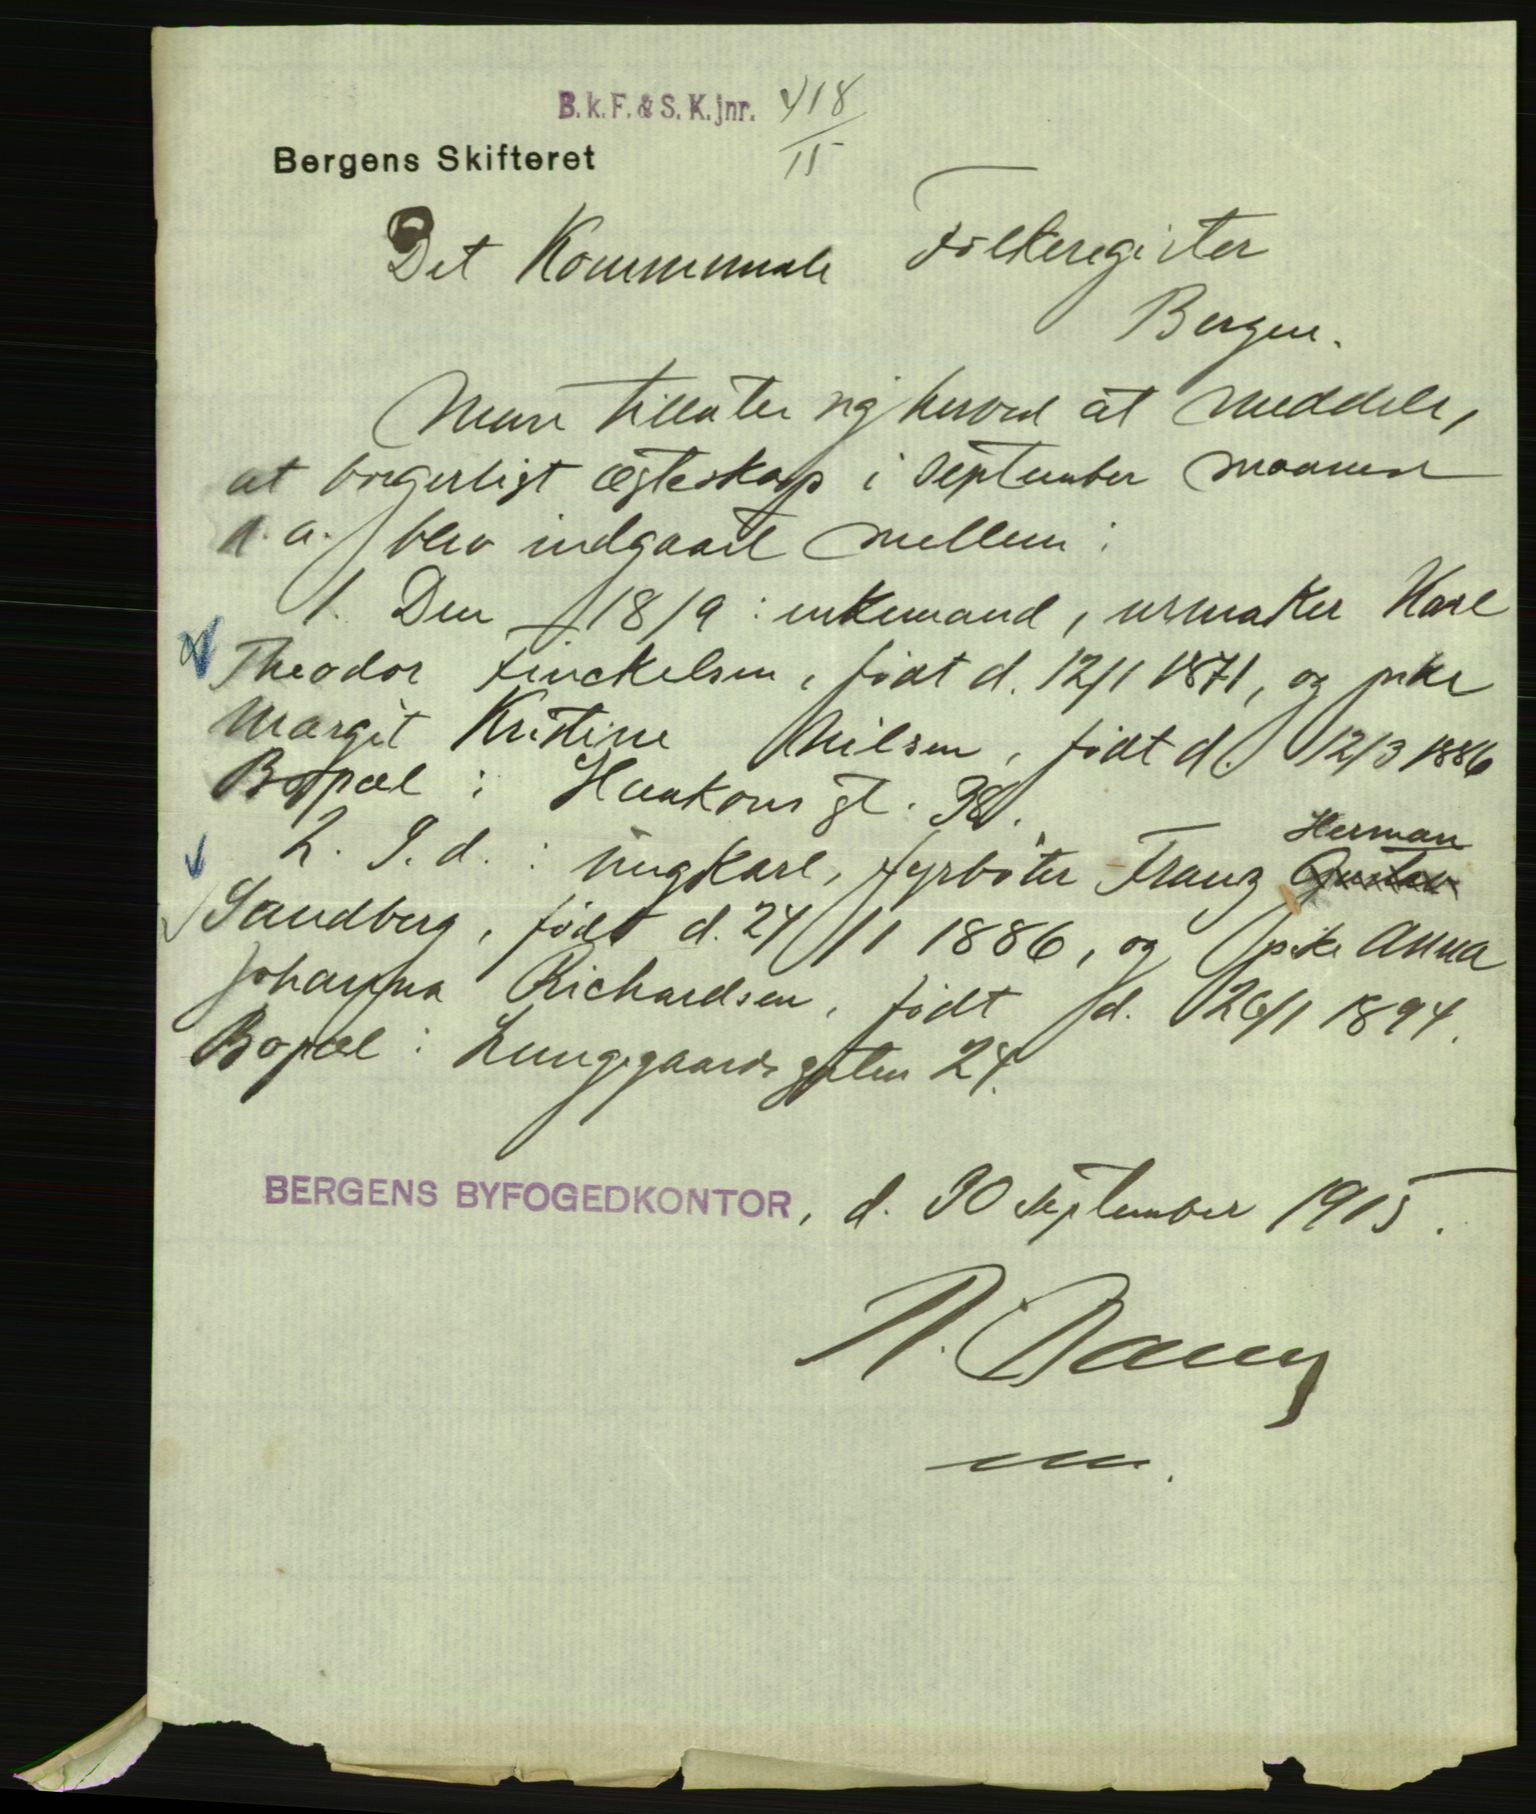 B.k.F.&S.K.jnr. 418/15
Bergens Skifteret
Det Kommunale Folkeregister
Bergen.
Man tillater sig herved at meddele,
at borgerligt ægteskap i september maaned
d.a. blev indgaaet mellem :
1. Den 18/9 : enkemand, urmaker Karl
Theodor Finckelsen, født d. 12/1 1871, og pike
Margit Kristine Nilsen, født d. 12/3 1886
Bopæl : Haakons gt. 38.
2. S. d. : ungkarl, fyrbøter Franz Herman Gustav
Sandberg, født d. 24/11 1886, og pike Anna
Johanna Richardsen, født d. 26/1 1894.
Bopæl : Lungegaardsgaten 24.
BERGENS BYFOGEDKONTOR, d. 30 september 1915.